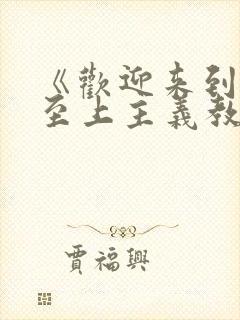 《歡迎来到
至上主義教
賈福興